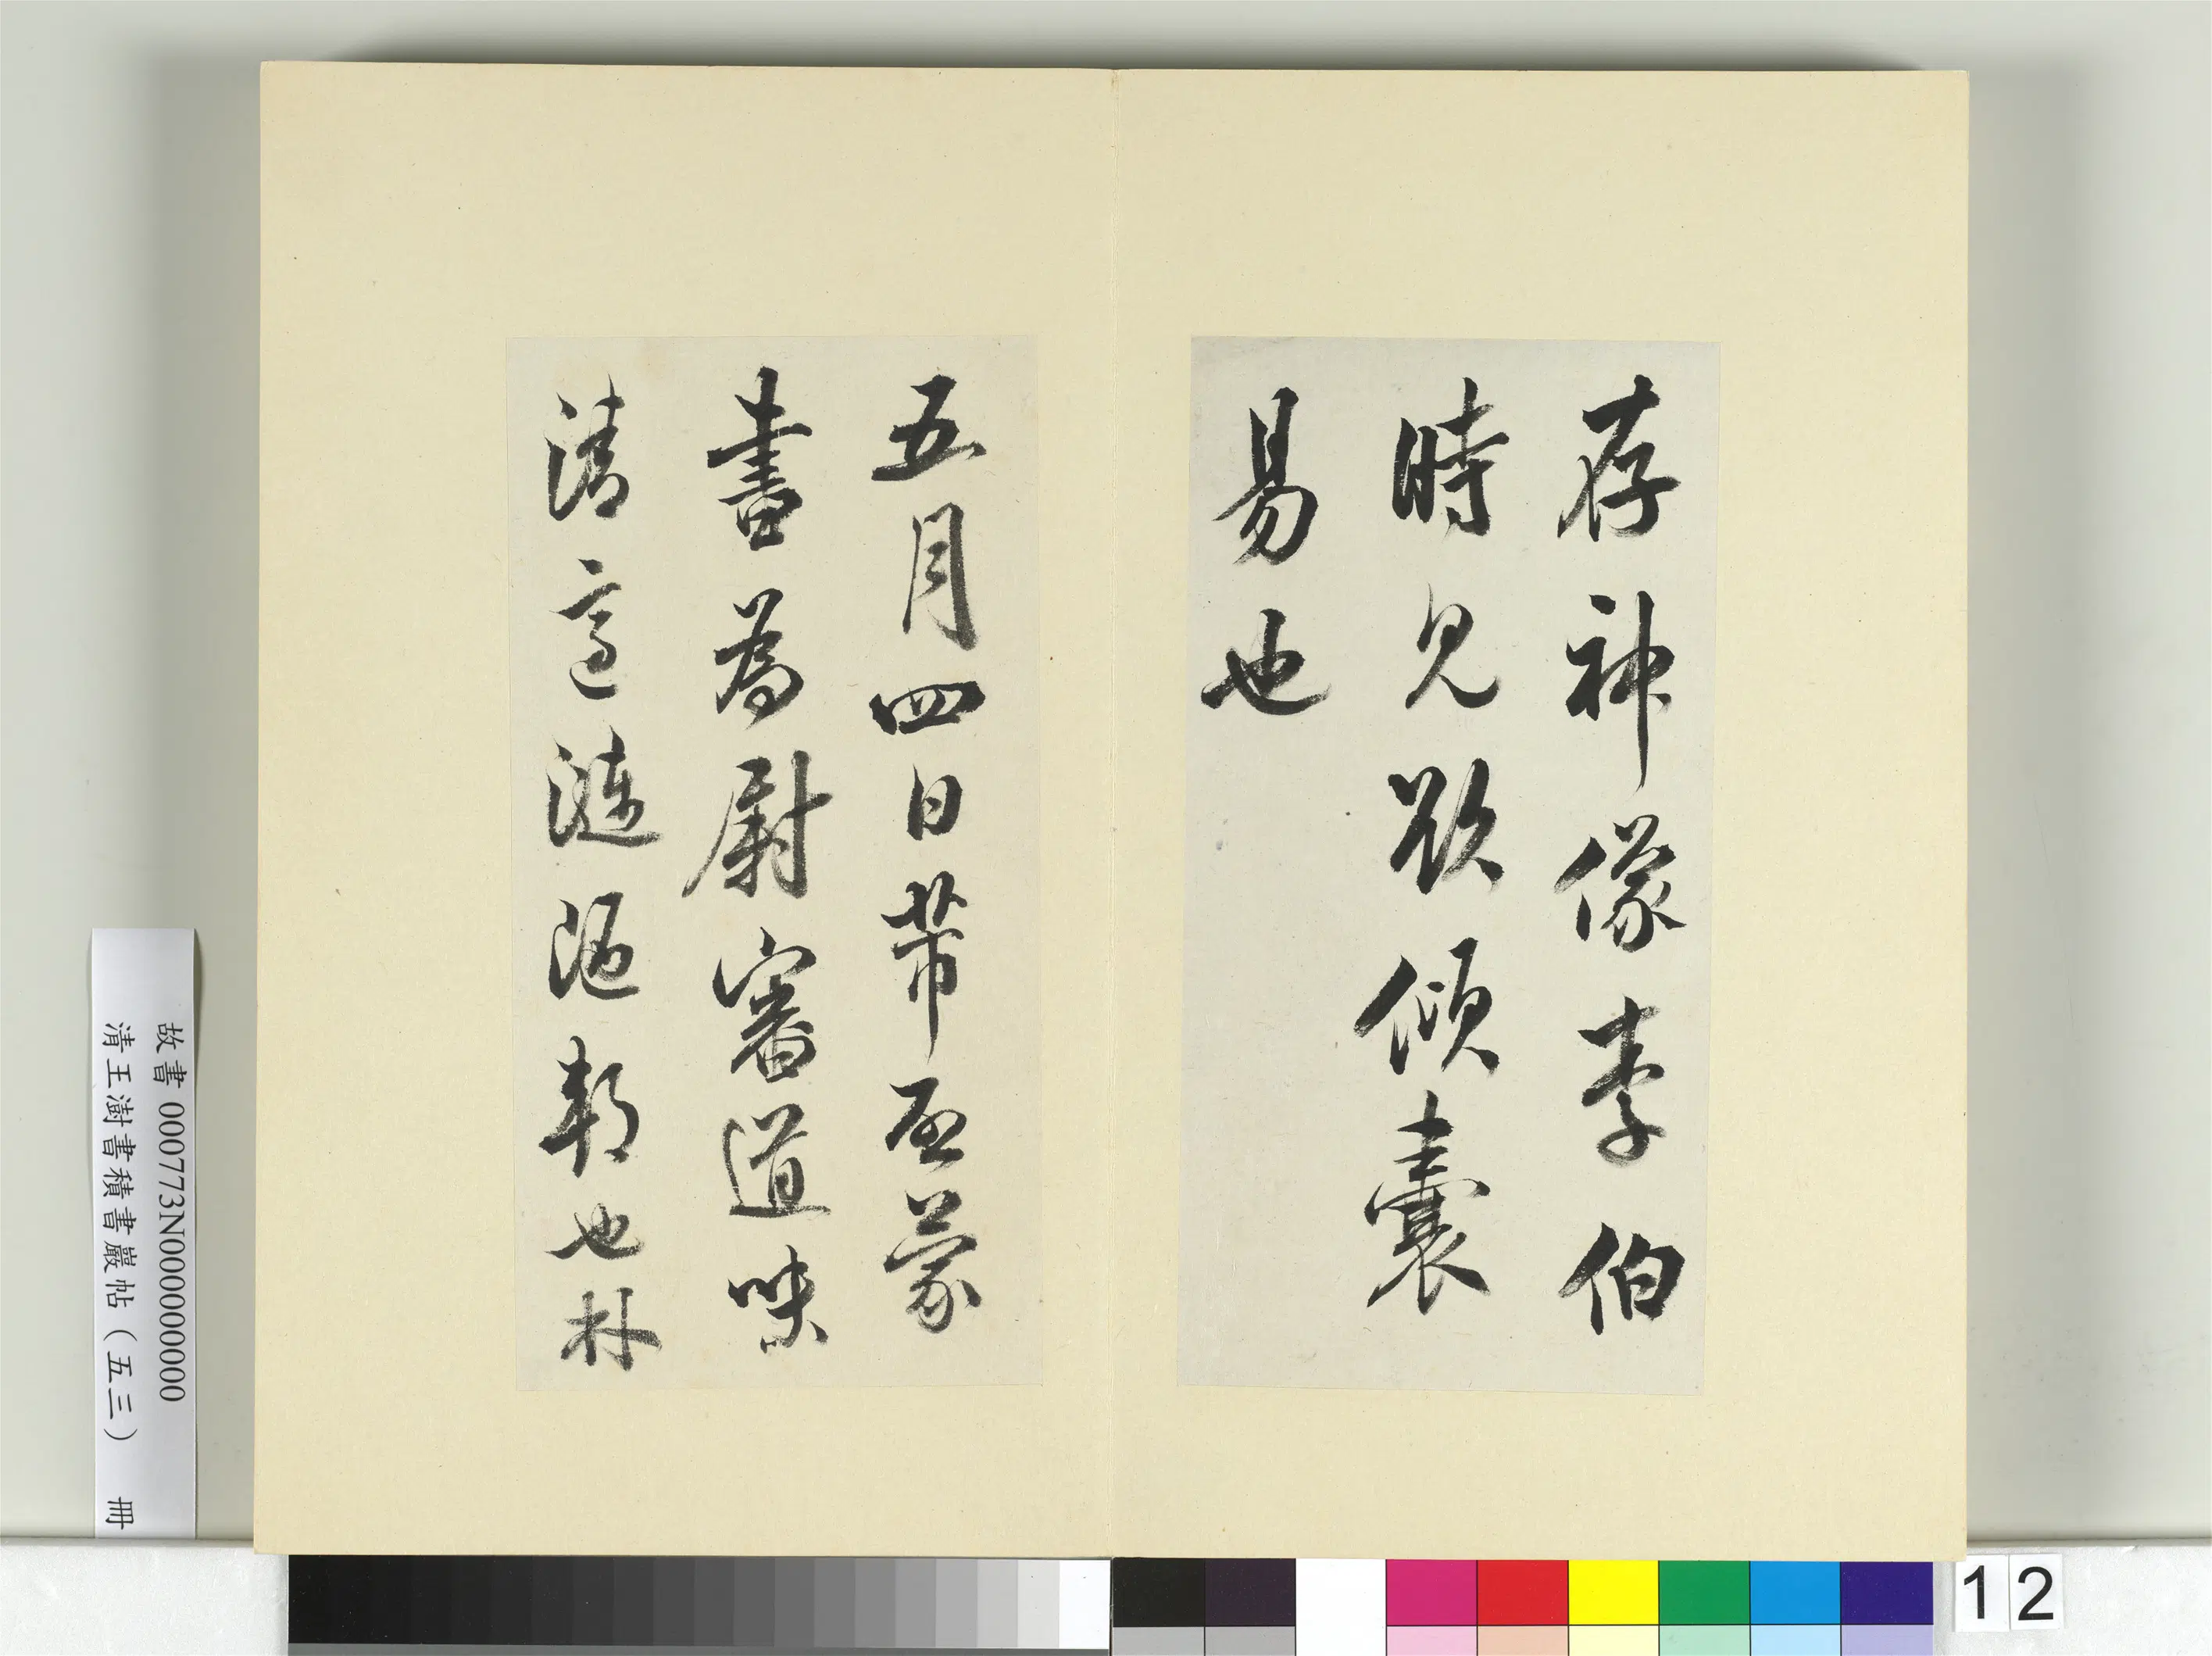 存神像李伯
時見欲傾囊
易也
五月四日芾啟蒙
書為尉審道味
清適漣陋邦也林
故書 000773N000000000
清王澍書積書巖帖（五三） 冊
12